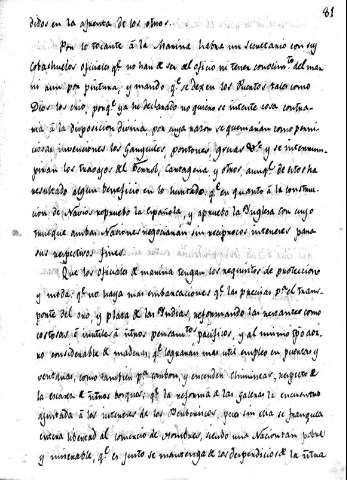 81
didos en la afrenta de los otros.
Por lo tocante à la Marina habra un secretario con sus
Cobachuelos oficiales qe. no han de ser del oficio ni tener conocimto. del mar
ni aun por pintura, y mando qe. se dejen los Puertos tales como
Dios los crio, porqe. ya he declarado no quiero se intente cosa contra-
ria à la disposicion divina, por cuya razon se quemaran como perni-
ciosas invenciones los Ganguiles, pontones, gruas &a. y se interrum-
piran los trabajos del Ferrol, Cartagena y otros aunqe. de estos ha
resultado algun beneficio en lo hurtado: qe. en quanto à la construc-
cion de Navios repruebo la Española, y apruebo la Inglesa con cuyo
trueque ambas Naciones negociaran sus reciprocos intereses para
sus respectivos fines.
Que los oficiales de marina tengan los requisitos de proteccion
y moda: qe. no haya mas embarcaciones qe. las precisas pa. el trans-
porte del oro, y plata de las Indias, reformando las restantes como
costosas è inutiles à ntros pensamtos. pacificos, y al mismo tpo. aor-
ro considerable de maderas, qe. lograran mas util empleo en puertas y
ventanas, como tambien pa. carbon, y encender chimineas, respecto de
la escasez de ntros bosques: qe. la reforma de las galeras la encuentro
ajustada à los intereses de los Berberiscos, pues sin ella se franquea
entera libertad al comercio de hombres, siendo una Nacion tan pobre
y miserable, qe. es justo se mantenga de los desperdicios de la ntra